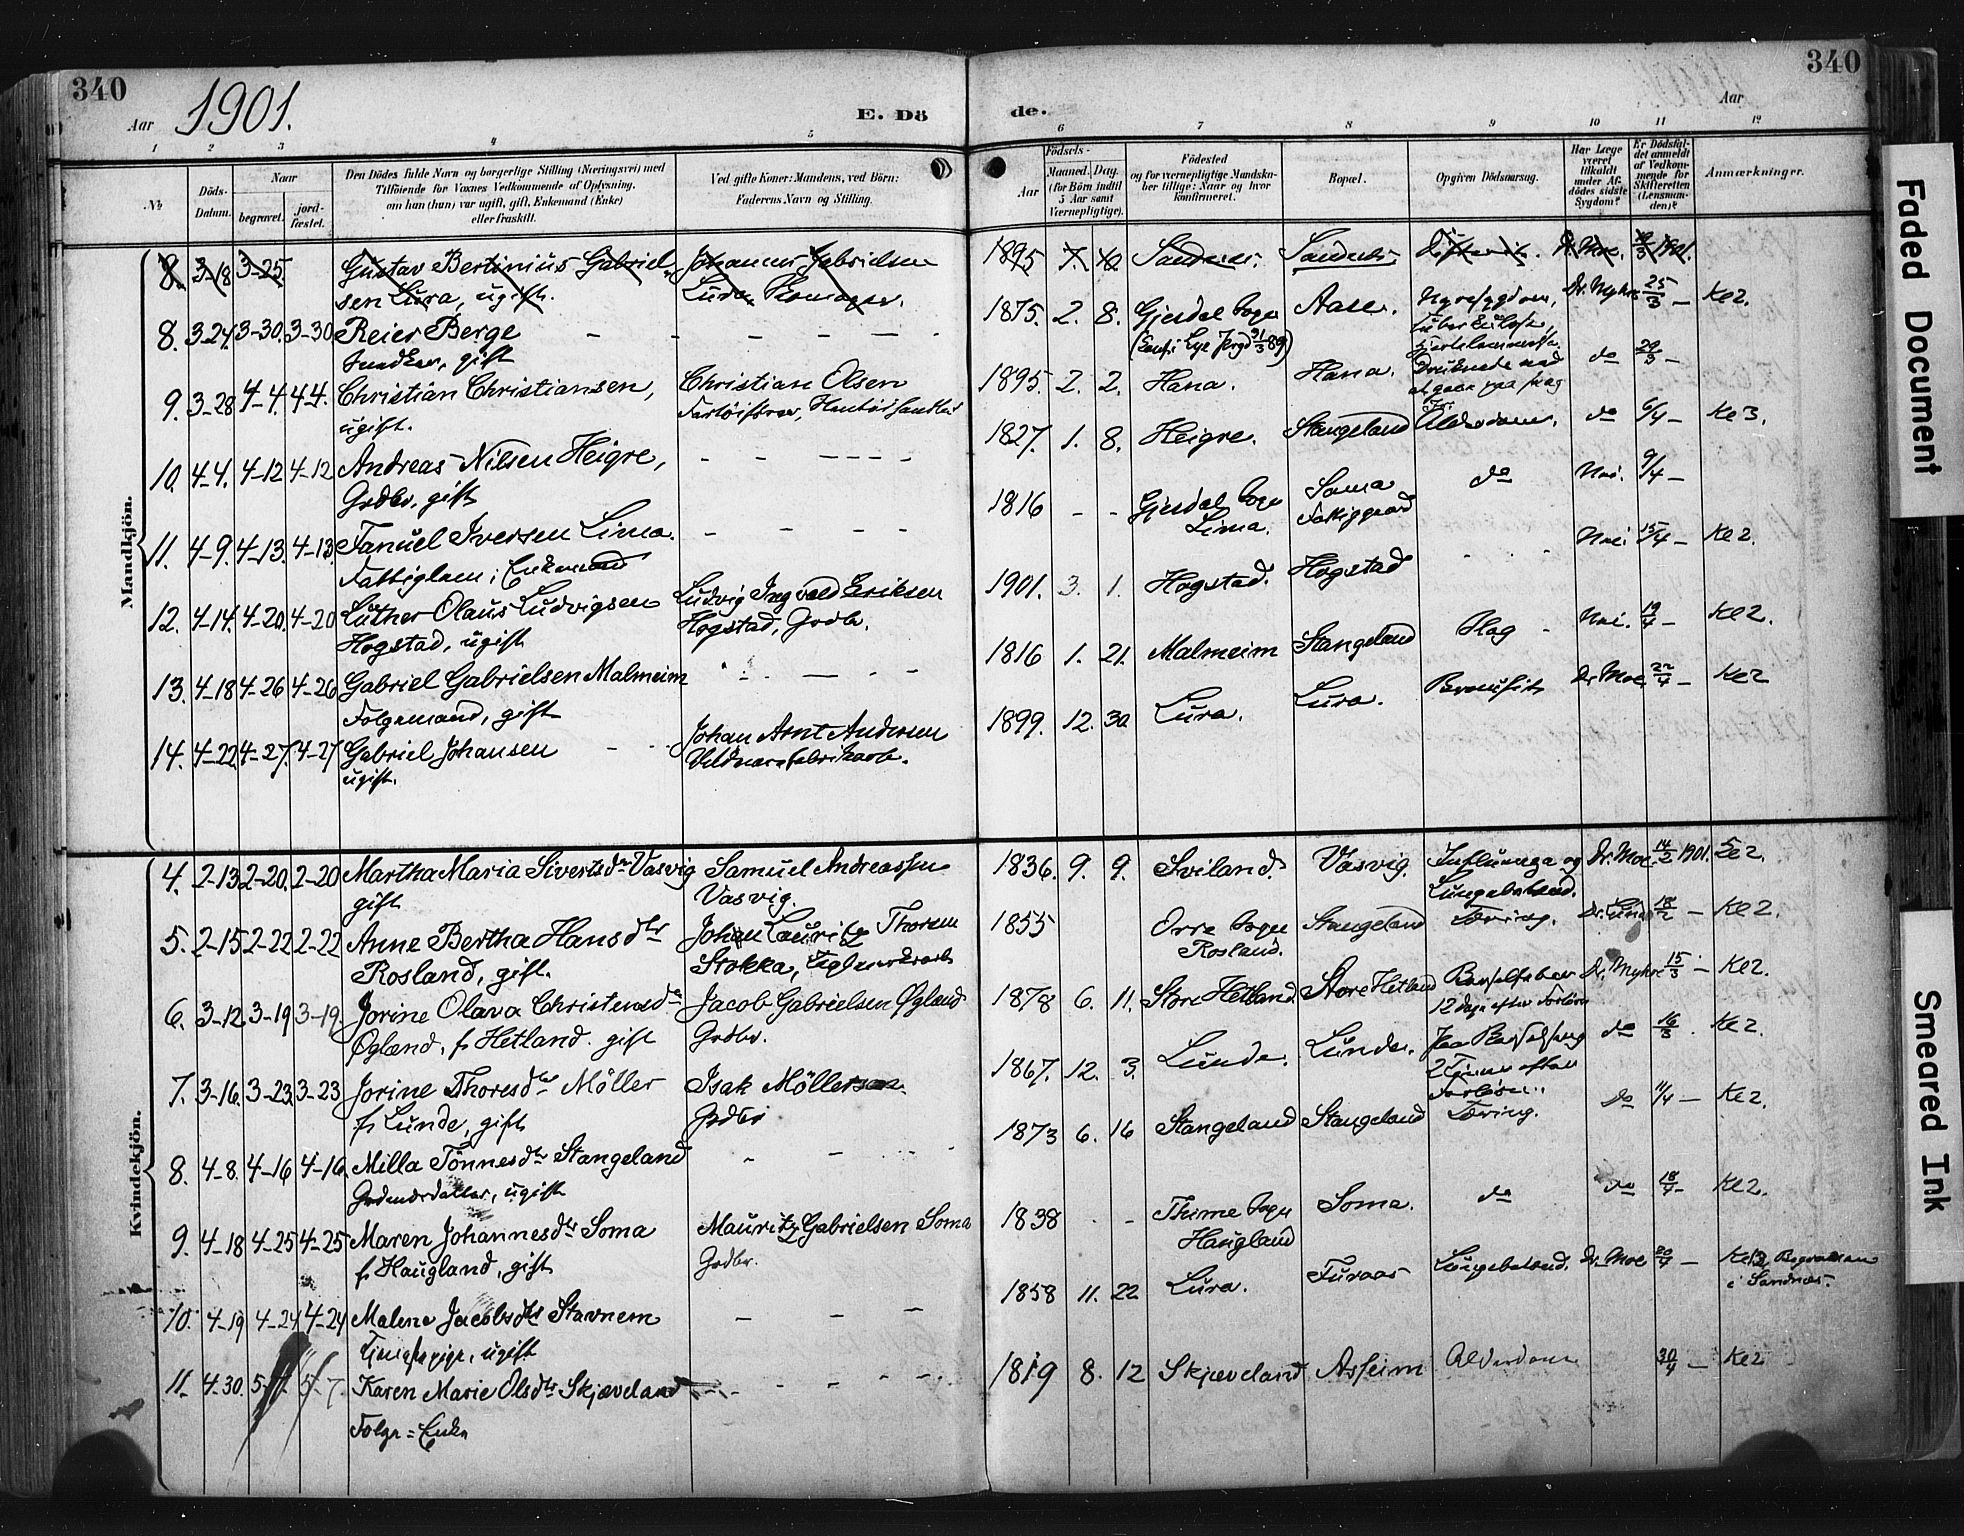 340
340
1901.
Aar
E. Dö
de.
Aar
1 2 3 4 5 6 7 8 9 10 11 12
№
Döds-
Datum.
Naar
begravet.
jord-
fæstet.
Den Dödes fulde Navn og borgerlige Stilling (Næringsvei) med
Tilföiende for Voxnes Vedkommende af Oplysning,
om han (hun) var ugift, gift, Enkemand (Enke)
eller fraskilt.
Ved gifte Koner: Mandens, ved Börn:
Faderens Navn og Stilling.
Födsels-
Aar
Maaned. Dag.
(for Börn indtil
5 Aar samt
Værnepligtige).
Födested
og for værnepligtige Mandska-
ber tillige: Naar og hvor
konfirmeret.
Bopæl.
Opgiven Dödsaarsag.
Har Læge
været
tilkaldt
under Af-
dödes sidste
Sygdom?
Er Dödsfal-
det anmeldt
af Vedkom-
mende for
Skifteretten
(Lensman-
den)?
Anmærkninger.
Mandkjön.
8. 3-18 3-25 Gustav Bertinius Gabriel- Johannes Gabrielsen 1895 7. Sandnes. Sandnes Dr. Moe. 1901.
sen Lura, ugift. Lura,
8. 3-24. 3-30. 3-30 Reier Berge - - - - - 1875. 2. 8. Gjesdal Sogn Aase. Nyresygdom, Dr. Myhre 25/3 - Kl 2.
gift
9. 3-28 4-4. 4-4. Christian Christiansen, Christian Olsen 1895 2. 2. Hana. Hana. Druknede ved do 29/3 -
ugift.
10. 4-4. 4-12 4-12 Andreas Nilsen Heigre, - - - - - - 1827. 1. 8. Heigre. Stangeland Alderdom. do 6/4 - Kl 3.
Grdbr, gift
11. 4-9. 4-13. 4-13. Tanuel Iversen Lima. - - - 1816 - - Gjesdal Sogn Soma do Nei. 9/4 -
Fattiglem, Enkemand Lima. Fattiggaard
12. 4-14. 4-20. 4-20 Luther Olaus Ludvigsen Ludvig Ingvald Eriksen 1901. 3. 1. Hogstad. Hogstad - - Nei. 15/4 - Kl 2.
Hogstad, ugift Hogstad, Grdbr.
13. 4-18 4-26 4-26 Gabriel Gabrielsen Malmeim - - 1816 1. 21. Malmeim Stangeland Slag - Nei. 19/4 - Kl 2.
Folgemand, gift
14. 4-22. 4-27. 4-27 Gabriel Johansen - - Johan Arnt Andersen 1899. 12. 30 Lura. Lura. Dr. Moe 22/4 - Kl 2
ugift.
Kvindekjön.
4. 2-13 2-20. 2-20 Martha Maria Sivertsdr Vasvig Samuel Andreassen 1836. 9. 9. Sviland. Vasvig. Influenza og Dr. Moe. 14/2 1901. Kl 2.
gift Vasvig.
5. 2-15 2-22 2-22 Anne Bertha Hansdtr Johan Lauritz Thorsen 1855 Orre Sogn Stangeland Tæring. 18/2 - Kl 2.
Rosland, gift. Stokka, Rosland.
6. 3-12. 3-19 3-19. Jorine Olava Christensdr Jacob Gabrielsen Øgland 1878 6. 11. Store Hetland. Store Hetland Barselfeber Dr. Myhre 15/3 - Kl 2.
Øgland, f. Hetland. gift Grdbr. 12 dage efter
7. 3-16. 3-23. 3-23 Jorine Thoresdr Möller Isak Möller 1867. 12. 3. Lunde. Lunde. do 16/3 - Kl 2.
f. Lunde, gift Grdbr
8. 4-8. 4-16 4-16. Milla Tönnesdtr Stangeland - - - 1873 6. 16 Stangeland Stangeland Tæring. do 11/4 - Kl 2.
ugift
9. 4-18 4-25 4-25 Maren Johannesdtr Soma Mauritz Gabrielsen Soma 1838 - - Thime Sogn Soma. do do 18/4 - Kl 2.
f. Haugland, gift Grdbr. Haugland
10. 4-19 4-24 4-24 Malene Jacobsdtr Stavnem - - - 1858 11. 22 Lura. Furaas Lungebetænd. Dr. Moe 20/4 - Kl 2, Begraven
ugift i Sandnes.
11. 4-30. 5-7. 5-7. Karen Marie Olsdtr Skjæveland - - - - 1819 8. 12 Skjæveland Asheim Alderdom 30/4 - Kl 2
Folge-Enke
Faded Document
Smeared Ink